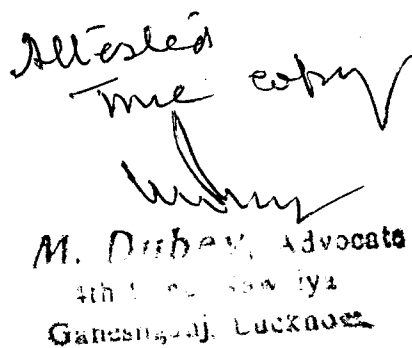 Attested
True copy
M. Dubey, Advocate
4th
Ganeshganj, Lucknow